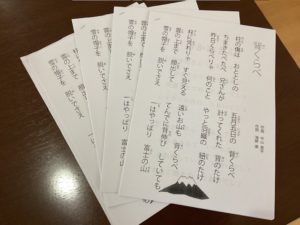 背くらべ
柱の傷は おととしの 五月五日の 背くらべ
ちまきたべたべ 兄さんが 計ってくれた 背のたけ
昨日くらべりゃ 何のこと やっと羽織の 紐のたけ
柱に凭れりゃ すぐ見える 遠いお山も 背くらべ
雲の上まで 顔出して てんでに背伸び していても
雪の帽子を 脱いでさえ 一はやっぱり 富士の山
雲の上まで
雪の帽子を 脱いでさえ